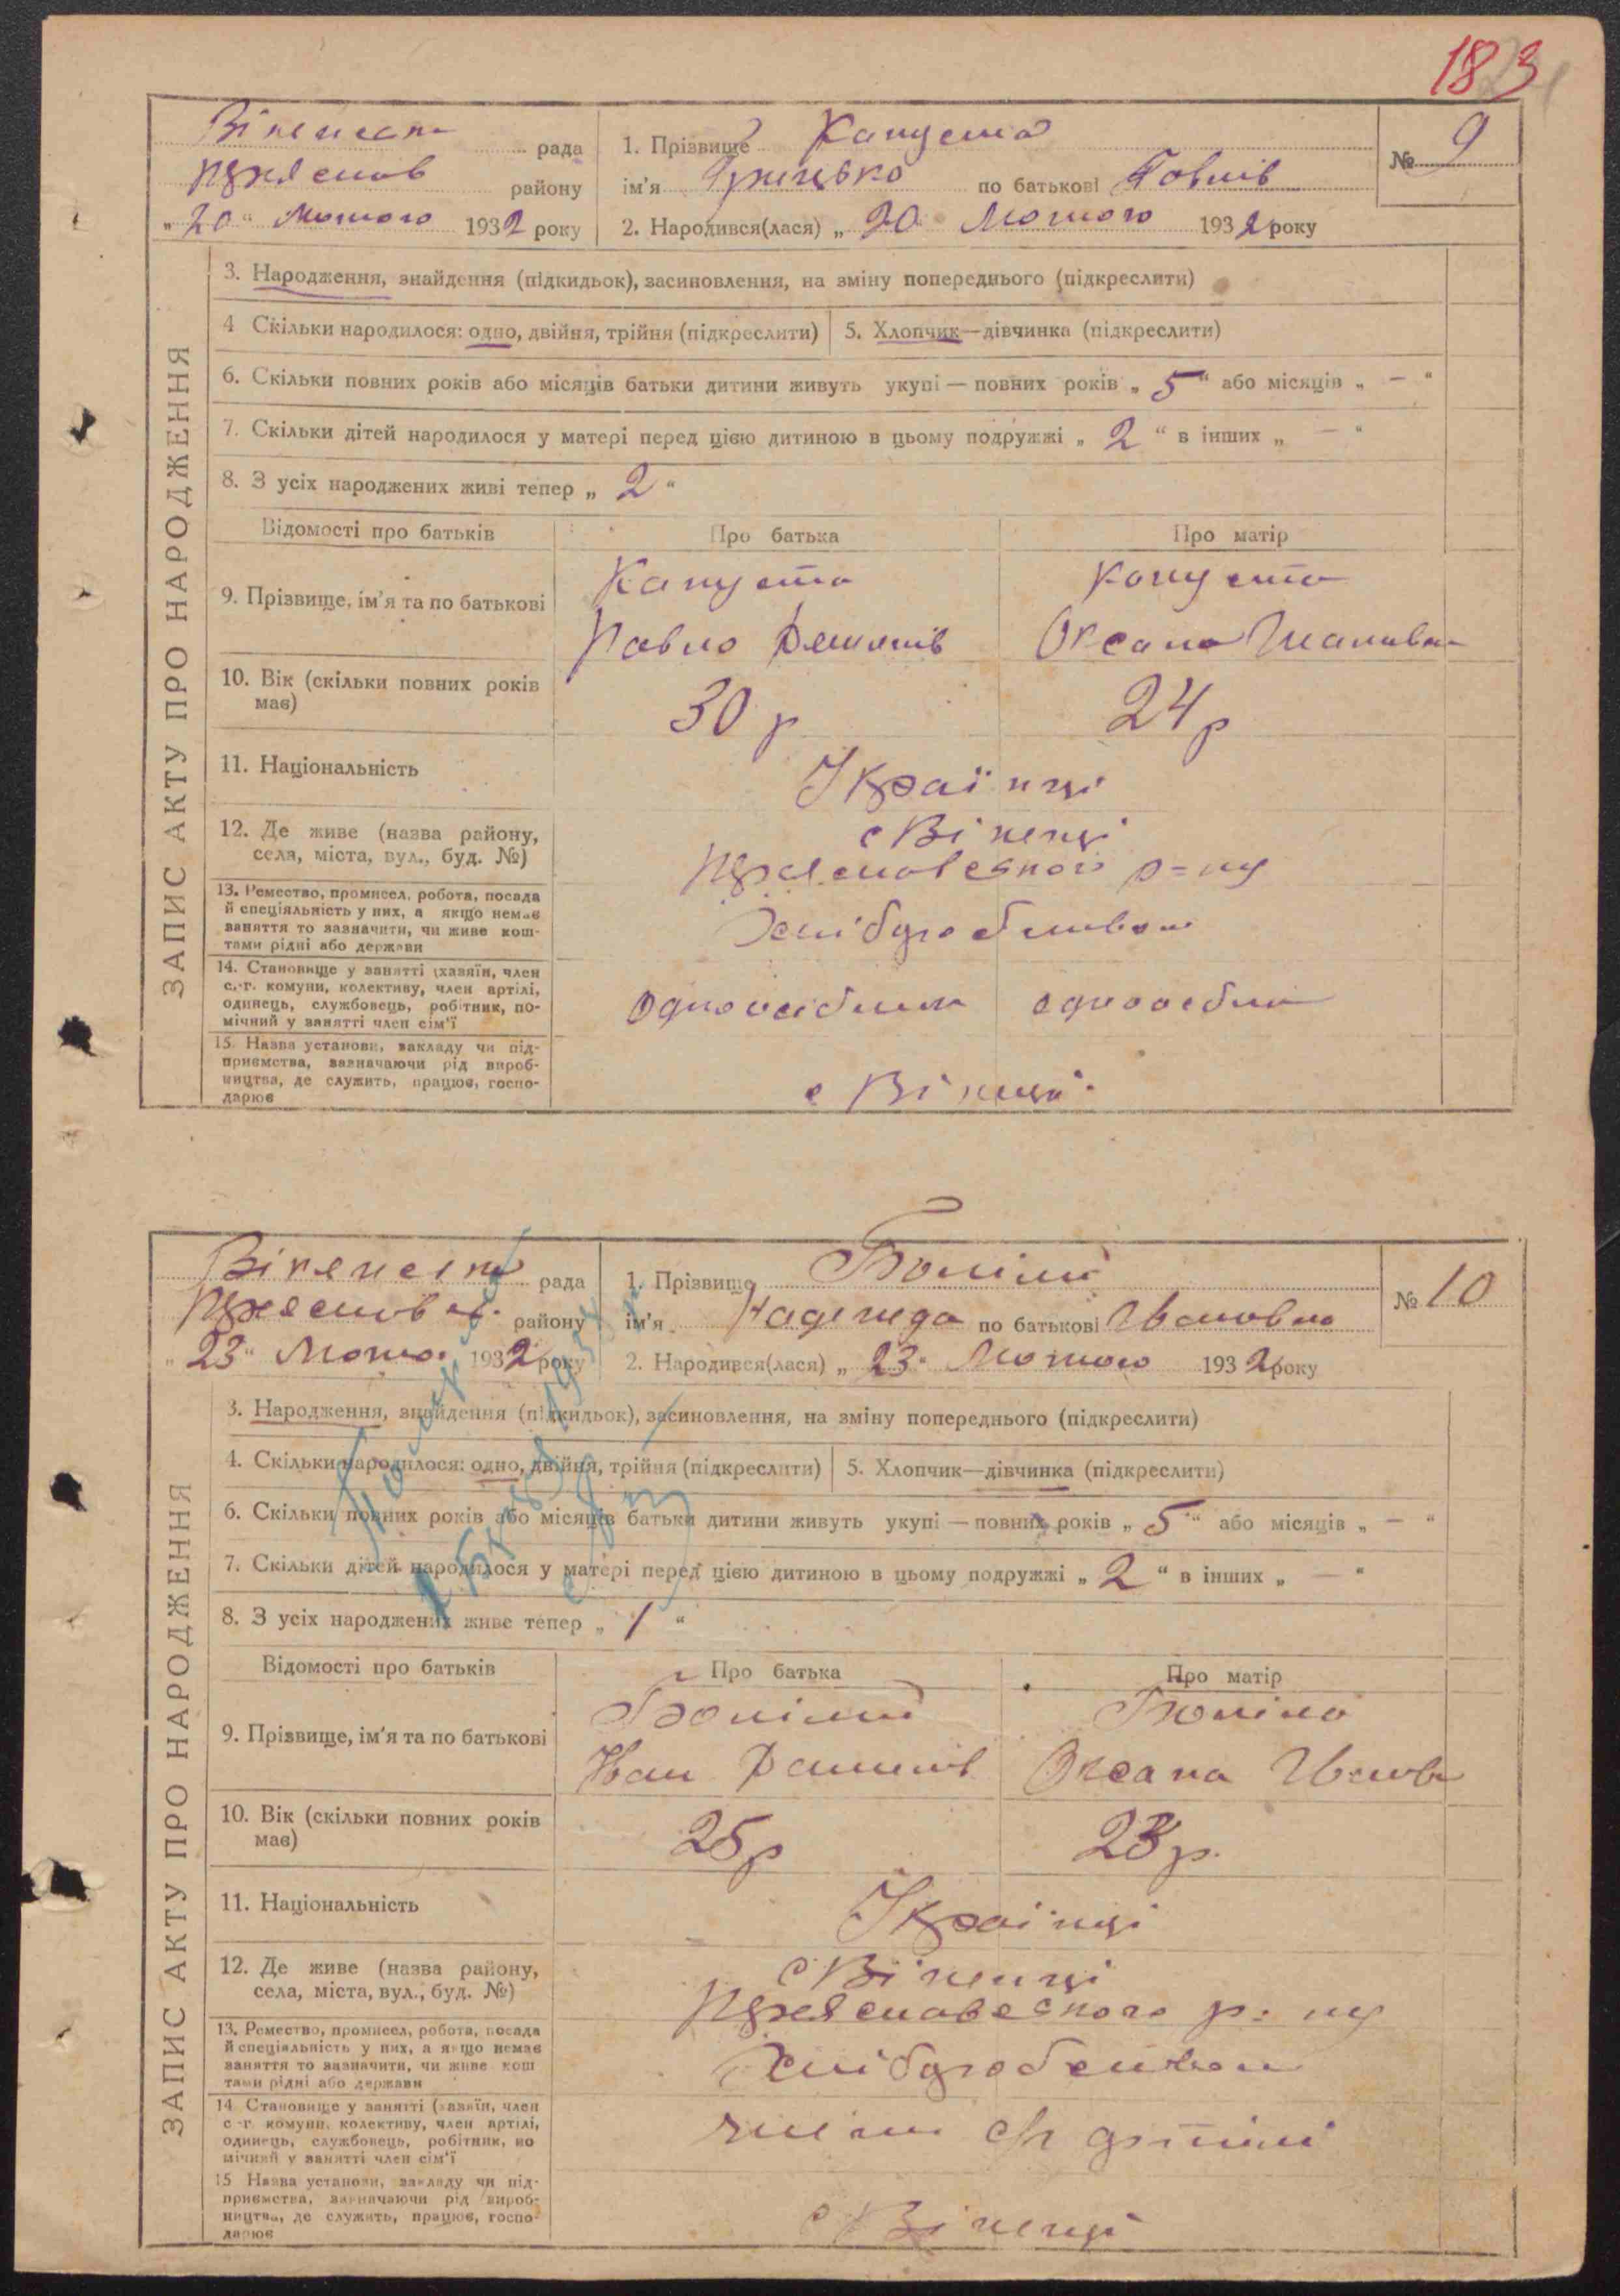 183
рада
району
„ 20 “ Лютого 1932 року
1. Прізвище Капуста
ім’я Грицько по батькові Павлів
2. Народився(лася) „ 20 Лютого 1932 року
№ 9
ЗАПИС АКТУ ПРО НАРОДЖЕННЯ
3. Народження, знайдення (підкидьок), засиновлення, на зміну попереднього (підкреслити)
4 Скільки народилося: одно, двійня, трійня (підкреслити)
5. Хлопчик—дівчинка (підкреслити)
6. Скільки повних років або місяців батьки дитини живуть укупі — повних років „ 5 “ або місяців „ — “
7. Скільки дітей народилося у матері перед цією дитиною в цьому подружжі „ 2 “ в інших „ — “
8. З усіх народжених живі тепер „ 2 “
Відомості про батьків Про батька Про матір
9. Прізвище, ім’я та по батькові
Капуста Капуста
Павло Оксана
10. Вік (скільки повних років
має)
30 р 24 р
11. Національність
Українці
12. Де живе (назва району,
села, міста, вул., буд. №)
с Віненці
р=ну
13. Ремество, промисел, робота, посада
й спеціяльність у них, а якщо немає
заняття то зазначити, чи живе кош-
тами рідні або держави
14. Становище у занятті (хазяїн, член
с.-г. комуни, колективу, член артілі,
одинець, службовець, робітник, по-
мічний у занятті член сім’ї
одноосібник одноосібни
15. Назва установи, закладу чи під-
приємства, зазначаючи рід вироб-
ництва, де служить, працює, госпо-
дарює
с
рада
району
„ 23 “ 1932 року
1. Прізвище
ім’я Надежда по батькові Івановна
2. Народився(лася) „ 23 “ Лютого 1932 року
№ 10
ЗАПИС АКТУ ПРО НАРОДЖЕННЯ
3. Народження, знайдення (підкидьок), засиновлення, на зміну попереднього (підкреслити)
4. Скільки народилося: одно, двійня, трійня (підкреслити)
5. Хлопчик—дівчинка (підкреслити)
6. Скільки повних років або місяців батьки дитини живуть укупі — повних років „ 5 “ або місяців „ — “
7. Скільки дітей народилося у матері перед цією дитиною в цьому подружжі „ 2 “ в інших „ — “
8. З усіх народжених живе тепер „ 1 “
Відомості про батьків Про батька Про матір
9. Прізвище, ім’я та по батькові
Іван Оксана
10. Вік (скільки повних років
має)
25 р 23 р.
11. Національність
Українці
12. Де живе (назва району,
села, міста, вул., буд. №)
с Віненці
13. Ремество, промисел, робота, посада
й спеціяльність у них, а якщо немає
заняття то зазначити, чи живе кош
тами рідні або держави
14 Становище у занятті (хазяїн, член
с-г. комуни, колективу, член артілі,
одинець, службовець, робітник, по
мічний у занятті член сім’ї
с/г артілі
15 Назва установи, закладу чи під-
приємства, зазначаючи рід вироб-
ництва, де служить, працює, госпо-
дарює
с Віненці